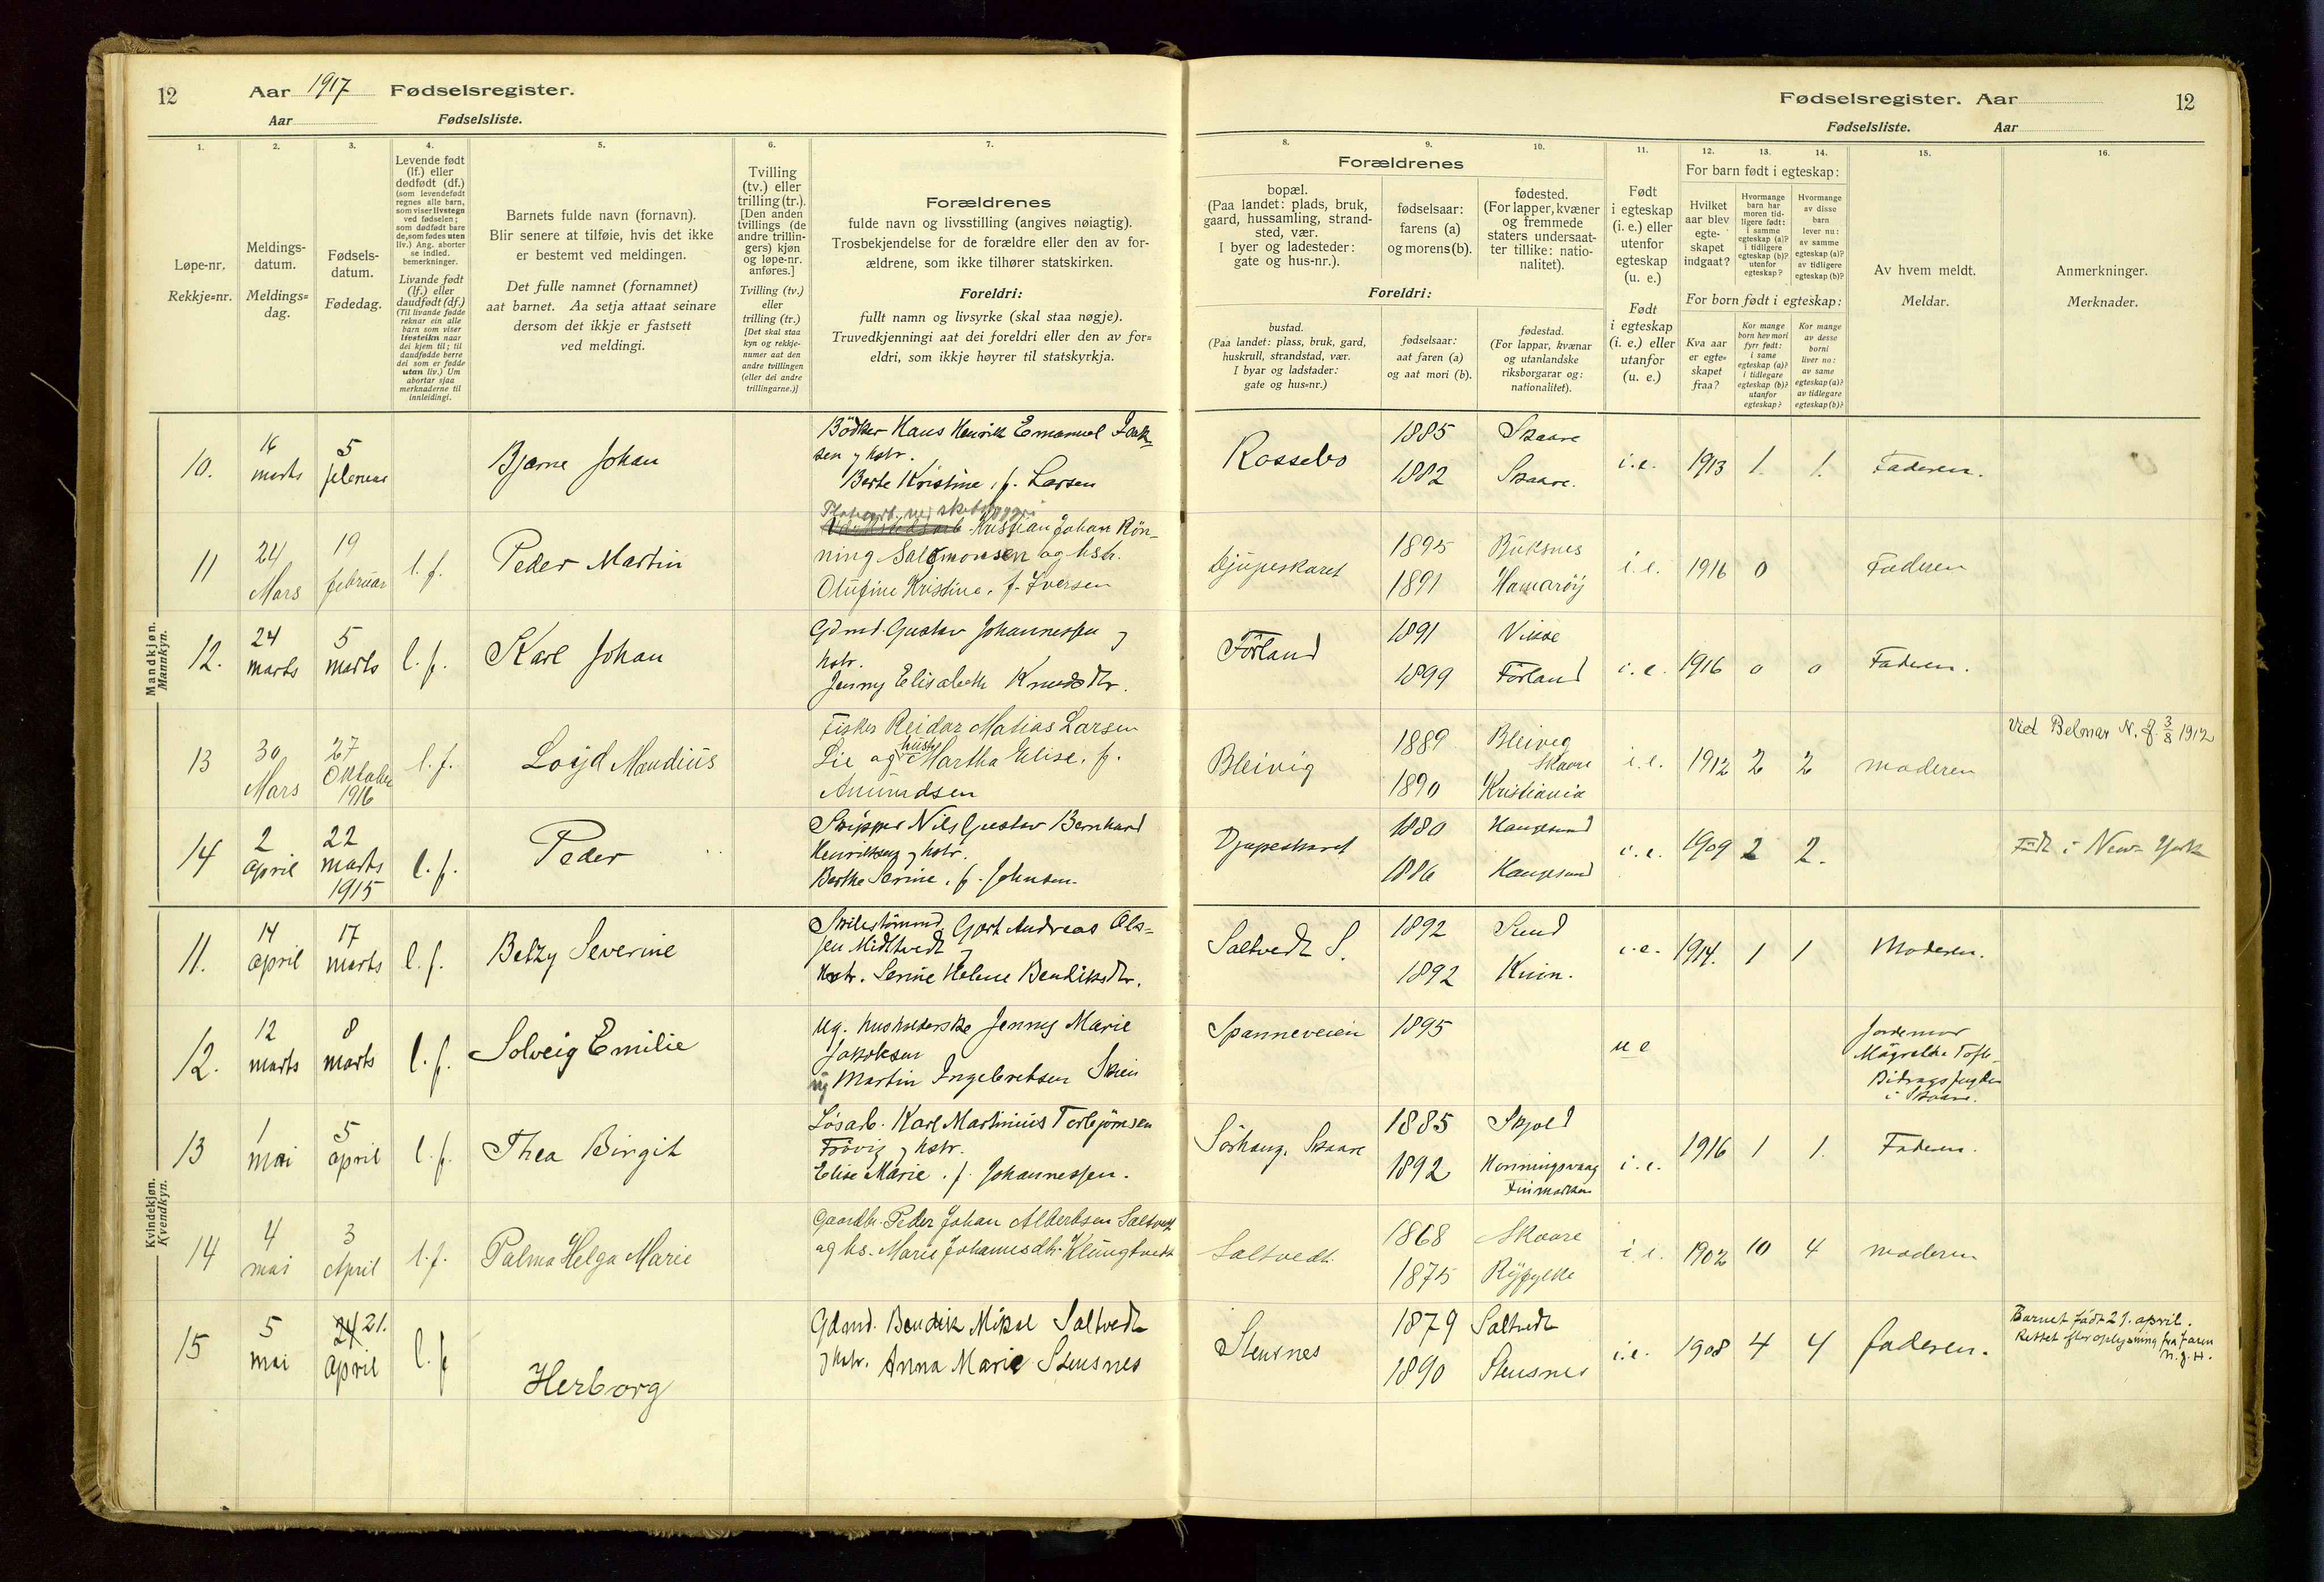 12 Aar 1917 Fødselsregister.
Aar Fødselsliste.
Fødselsregister. Aar 12
Fødselsliste. Aar
1. 2. 3. 4. 5. 6. 7.
Løpe-nr.
Rekkje=nr.
Meldings-
datum.
Meldings=
dag.
Fødsels-
datum.
Fødedag.
Levende født
(lf.) eller
dødfødt (df.)
(som levendefødt
regnes alle barn,
som viser livstegn
ved fødselen;
som dødfødt bare
de, som fødes uten
liv.) Ang. aborter
se indled.
bemerkninger.
Livande født
(lf.) eller
daudfødt (df.)
(Til livande fødde
reknar ein alle
barn som viser
livsteikn naar
dei kjem til; til
daudfødde berre
dei som er fødde
utan liv.) Um
abortar sjaa
merknaderne til
innleidingi.
Barnets fulde navn (fornavn).
Blir senere at tilføie, hvis det ikke
er bestemt ved meldingen.
Det fulle namnet (fornamnet)
aat barnet. Aa setja attaat seinare
dersom det ikkje er fastsett
ved meldingi.
Tvilling
(tv.) eller
trilling (tr.).
[Den anden
tvillings (de
andre trillin-
gers) kjøn
og løpe-nr.
anføres.]
Tvilling (tv.)
eller
trilling (tr.)
[Det skal staa
kyn og rekkje-
numer aat den
andre tvillingen
(eller dei andre
trillingarne.)]
Forældrenes
fulde navn og livsstilling (angives nøiagtig).
Trosbekjendelse for de forældre eller den av for-
ældrene, som ikke tilhører statskirken.
Foreldri:
fullt namn og livsyrke (skal staa nøgje).
Truvedkjenningi aat dei foreldri eller den av for=
eldri, som ikkje høyrer til statskyrkja.
8. 9. 10. 11. 12. 13. 14. 15. 16.
Forældrenes
bopæl.
(Paa landet: plads, bruk,
gaard, hussamling, strand-
sted, vær.
I byer og ladesteder:
gate og hus-nr.).
fødselsaar:
farens (a)
og morens (b).
fødested.
(For lapper, kvæner
og fremmede
staters undersaat-
ter tillike: natio-
nalitet).
Foreldri:
bustad.
(Paa landet: plass, bruk, gard,
huskrull, strandstad, vær.
I byar og ladstader:
gate og hus-nr.)
fødselsaar:
aat faren (a)
og aat mori (b).
fødestad.
(For lappar, kvænar
og utanlandske
riksborgarar og:
nationalitet).
Født
i egteskap
(i. e.) eller
utenfor
egteskap
(u. e.)
Født
i egteskap
(i. e.) eller
utanfor
(u. e.)
For barn født i egteskap:
Hvilket
aar blev
egte-
skapet
indgaat?
Hvormange
barn har
moren tid-
ligere født:
i samme
egteskap (a)?
i tidligere
egteskap (b)?
utenfor
egteskap?
Hvormange
av disse
barn
lever nu:
av samme
egteskap (a)?
av tidligere
egteskap (b)?
For born født i egteskap:
Kva aar
er egte=
skapet
fraa?
Kor mange
born hev mori
fyrr født:
i same
egteskap (a)?
i tidlegare
egteskap (b)?
utanfor
egteskap?
Kor mange
av desse
borni
liver no:
av same
egteskap (a)?
av tidlegare
egteskap (b)?
Av hvem meldt.
Meldar.
Anmerkninger.
Merknader.
Mandkjøn.
Mannkyn.
10. 16 marts 5 februar Bjarne Johan
Bödker Hans Henrik Emanuel Isak-
sen og hstr.
Berte Kristine, f. Larsen
Rossebø 1885 Skaare
1882 Skaare.
i.e. 1913 1. 1. Faderen.
11 24 Mars 19 februar l.f. Peder Martin
Kristian Johan Røn-
ning Salomonsen og hstr.
Olufine Kristine, f. Iversen
Djupeskaret 1895 Buksnes
1891 Hamarøy
i.e. 1916 0 Faderen
12. 24 marts 5 marts l.f. Karl Johan
Gdmd. Gustav Johannessen og
hstr.
Jenny Elisabeth Knudsdtr.
Førland 1891 Vikse
1899 Førland
i.e. 1916 0 0 Faderen.
13 30 Mars 27 Oktober 1916 l.f. Loyd Mandius
Fisker Reidar Matias Larsen
Lie og hustr Martha Elise, f.
Amundsen
Bleivig 1889 Bleiveg Skaare
1890 Kristiania
i.e. 1912 2 2 moderen
Viet Belmar N. J. 3/8 1912
14 2 april 22 marts 1915 l.f. Peder
Skipper Nils Gustav Bernhard
Henriksen og hstr.
Berthe Serine, f. Johnsen.
Djupeskaret 1880 Haugesund
1886 Haugesund
i.e. 1909 2 2.
Født i New-York
Kvindekjøn.
Kvendkyn.
11. 14 april 17 marts l.f. Betzy Severine
Gjert Andreas Ols-
sen Midttvedt og
Hstr. Serine Helene Bendiksdtr.
Saltvedt S. 1892 Sund
1892 Kinn.
i.e. 1914. 1 1 Moderen.
12. 12 marts 8 marts l.f. Solveig Emilie
Ug. husholderske Jenny Marie
Jakobsen
og Martin Ingebretsen Skien
Spanneveien 1895
u e
Jordemor
i Skaare.
13 1 mai 5 april l.f. Thea Birgit
Løsarb. Karl Martinius Torbjørnsen
Frøvig og hstr.
Elise Marie, f. Johannessen.
Sørhaug, Skaare 1885 Skjold
1892 Honningsvaag
Finmarken
i.e. 1916 1 1. Faderen.
14 4 mai 3 April l.f. Palma Helga Marie
Gaardbr. Peder Johan Albertsen Saltvedt
og hs. Marie Johannesdtr. Klungtvedt
Saltvedt. 1868 Skaare
1875 Ryfylke
i.e. 1902 10 4 moderen
15 5 mai 24 21. april l.f Herborg
Gdmd. Bendik Mikal Saltvedt
og hstr. Anna Marie Stensnes
Stensnes 1879 Saltvedt
1890 Stensnes
i.e. 1908 4 4 faderen.
Barnet født 21. april.
Rettet efter oplysning fra faren
N.J.H.